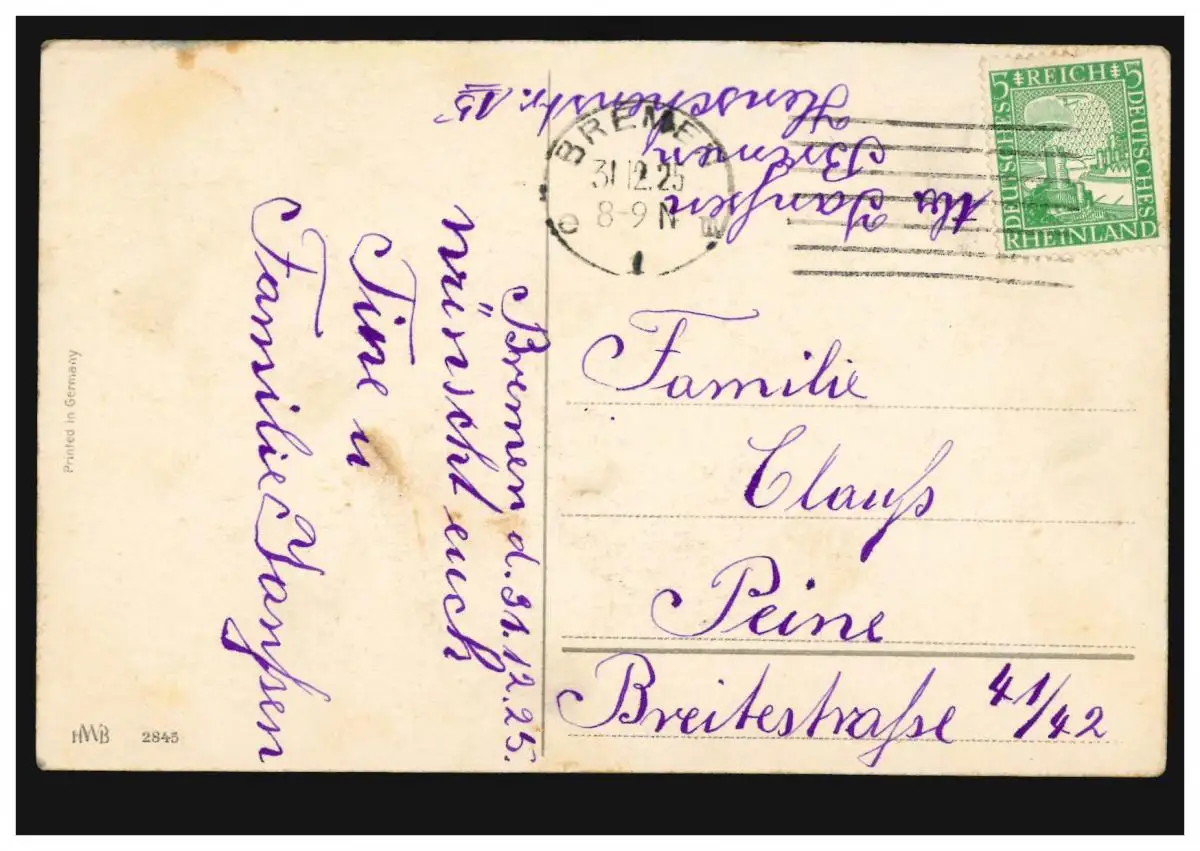 Bremen d. 31.12.25.
wünscht euch
Tine u
Familie Janßen
Familie
Clauß
Peine
Breitestraße 41/42
Janßen
Bremen,
BREMEN
31.12.25
8-9 N
1
5 REICH 5
DEUTSCHES
DEUTSCHES
RHEINLAND
Printed in Germany
HMB 2845